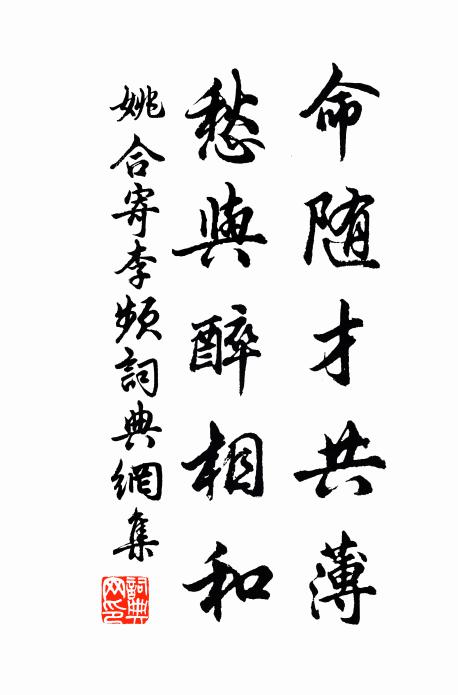 命随才共薄
愁與醉相和
姚合寄李頻詞典網集
詞典網印